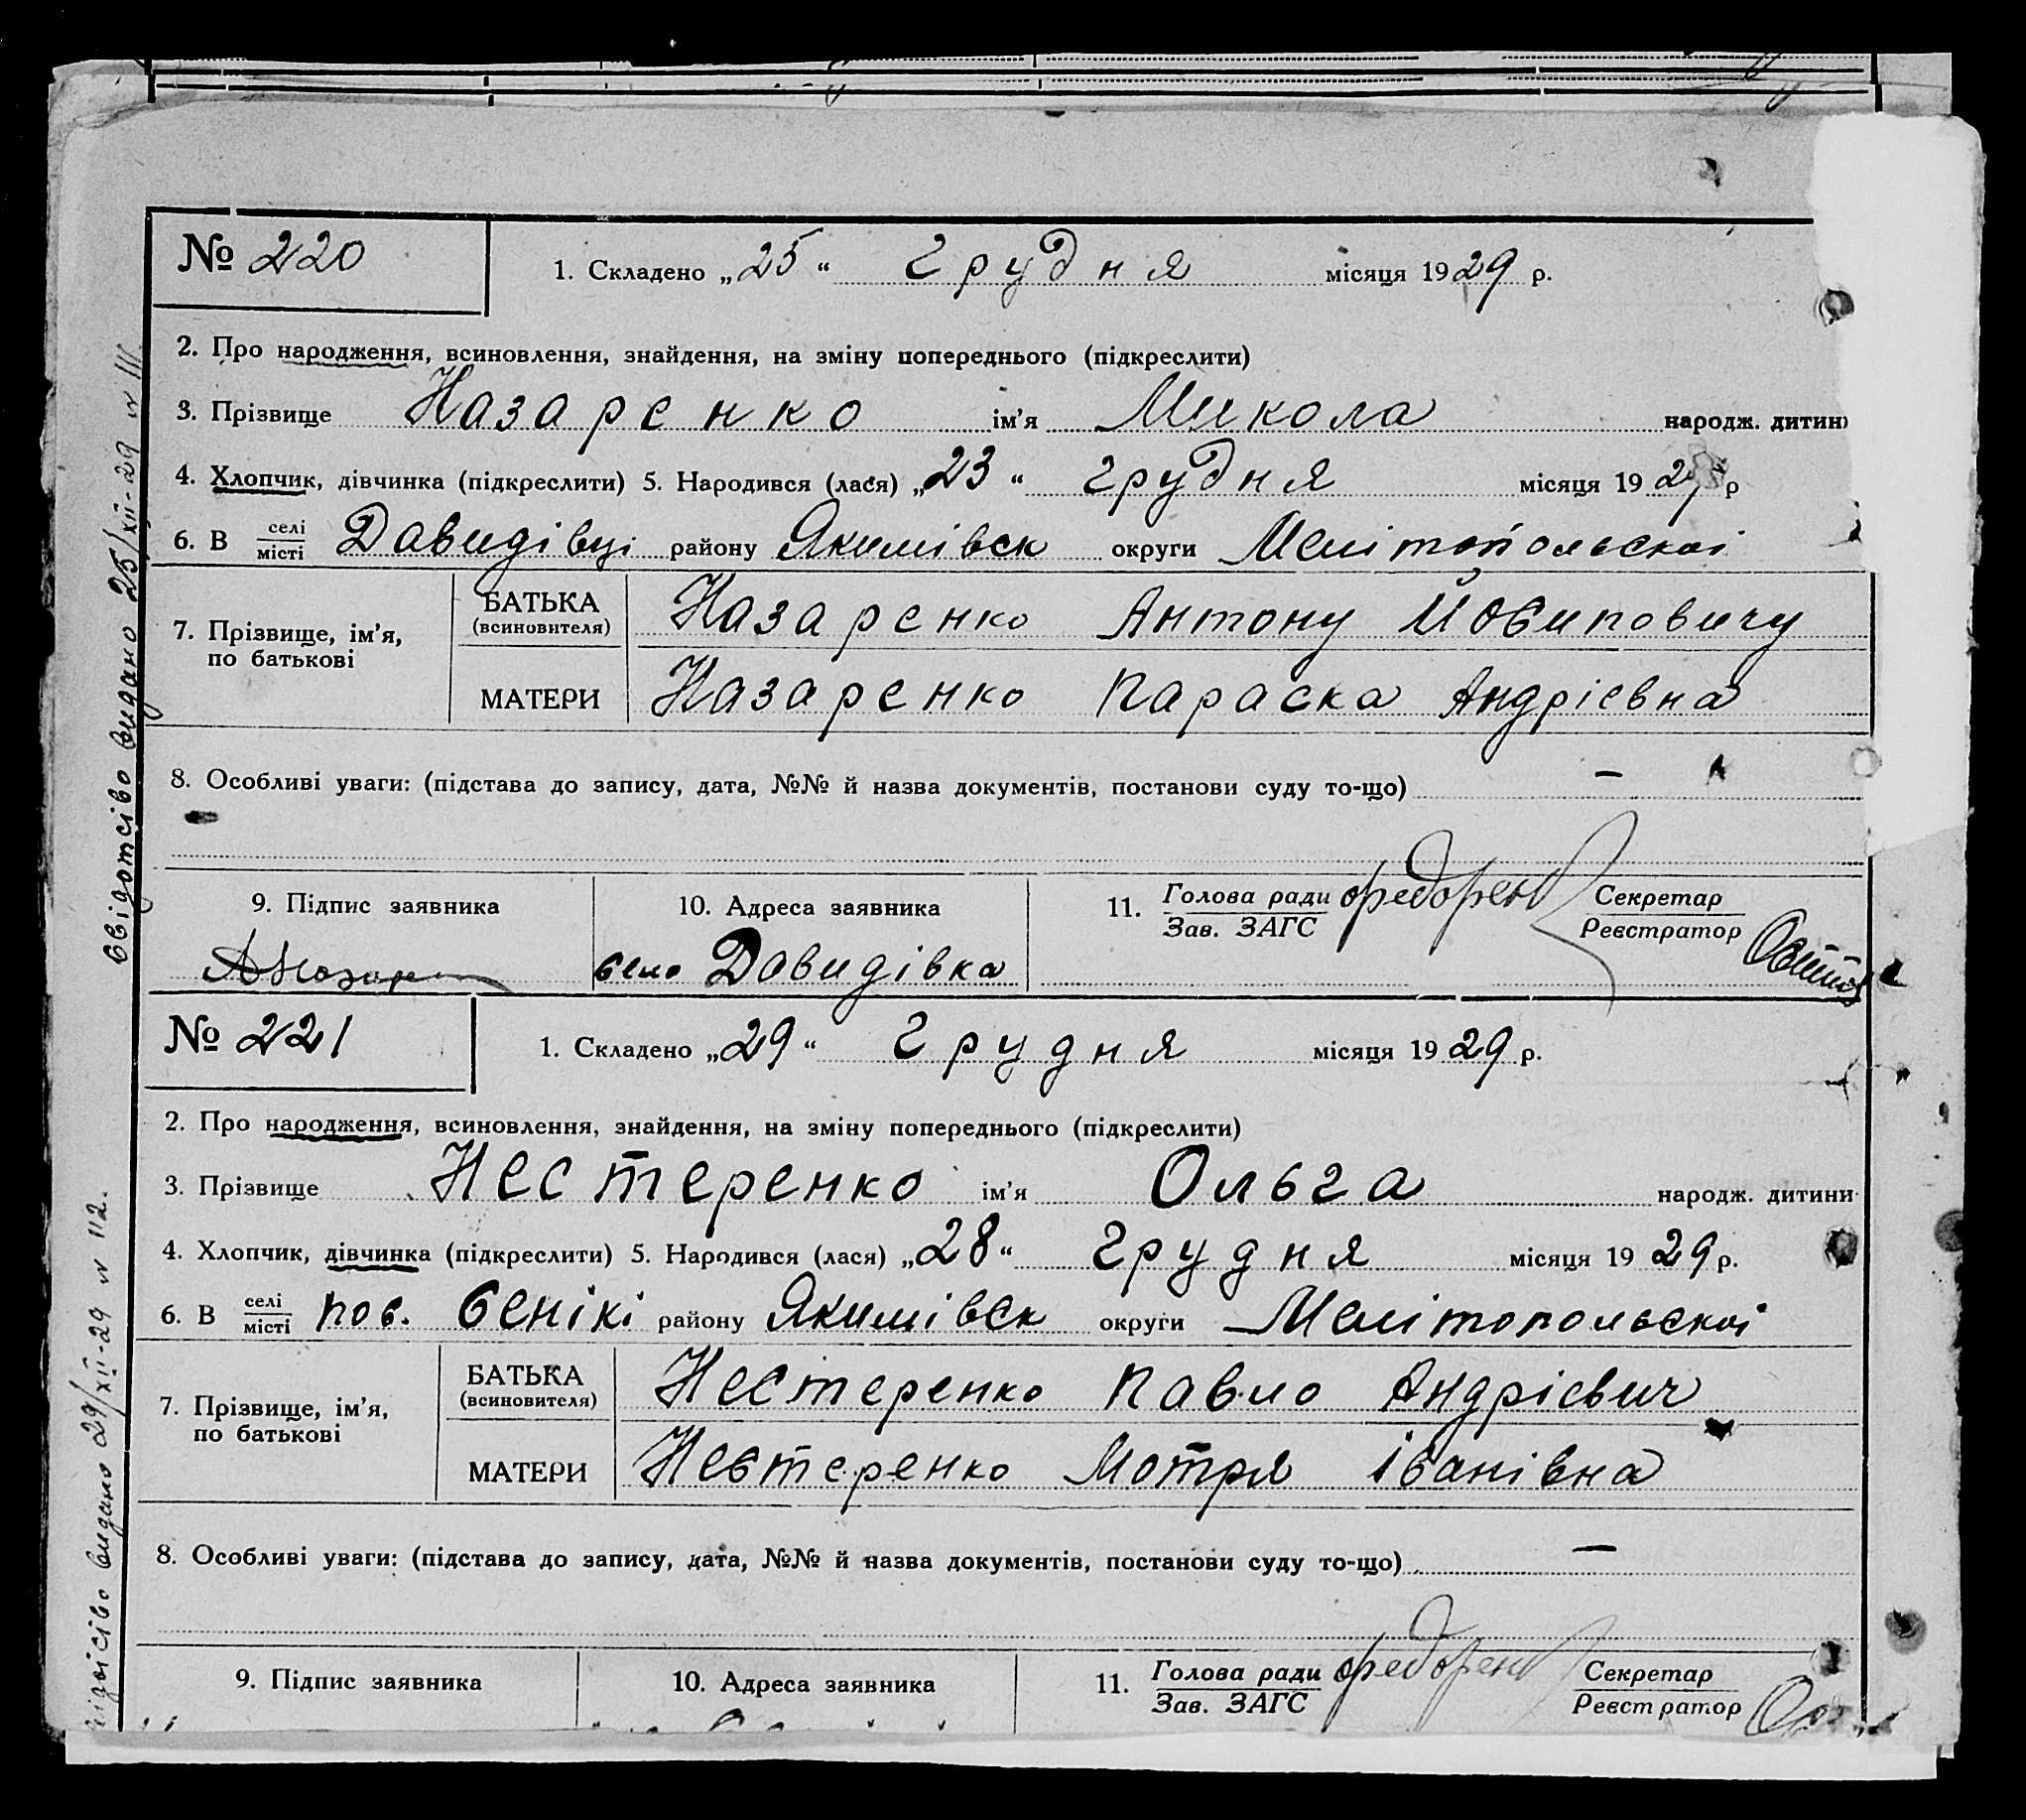 № 220
1. Складено „25“ Грудня місяця 1929 р.
2. Про народження, всиновлення, знайдення, на зміну попереднього (підкреслити)
3. Прізвище Назаренко ім'я Микола народж. дитин
4. Хлопчик, дівчинка (підкреслити) 5. Народився (лася) „23“ грудня місяця 1929 р
6. В селі місті Давидівці району Якимівск округи Мелітопольскої
7. Прізвище, ім'я, по батькові
БАТЬКА (всиновителя) Назаренко Антону Йосиповичу
МАТЕРИ Назаренко Параска Андрієвна
8. Особливі уваги: (підстава до запису, дата, №№ й назва документів, постанови суду то-що) —
9. Підпис заявника
10. Адреса заявника
11. Голова ради Зав. ЗАГС Федорен Секретар Реєстратор
село Давидівка
Свідотсіво видано 25/XII-29 № 111
№ 221
1. Складено „29“ Грудня місяця 1929 р.
2. Про народження, всиновлення, знайдення, на зміну попереднього (підкреслити)
3. Прізвище Нестеренко ім'я Ольга народж. дитини
4. Хлопчик, дівчинка (підкреслити) 5. Народився (лася) „28“ грудня місяця 1929 р.
6. В селі місті пос. Сенікі району Якимівск округи Мелітопольскої
7. Прізвище, ім'я, по батькові
БАТЬКА (всиновителя) Нестеренко Павло Андрієвич
МАТЕРИ Нестеренко Мотря Іванівна
8. Особливі уваги: (підстава до запису, дата, №№ й назва документів, постанови суду то-що) —
9. Підпис заявника
10. Адреса заявника
11. Голова ради Зав. ЗАГС Федорен Секретар Реєстратор
видано 29/XII-29 № 112.